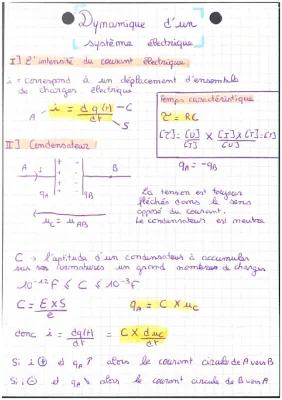 Dynamique d'un
système électrique
I] L'intensité du courant électrique
i = correspond à un déplacement d'ensemble
de charges électrique
A i = dq(t)/dt C
S
Temps caractéristique
τ = RC
[τ] = [U]/[I] × [I]×[T]/[U] = [T]
II] Condensateur
qA = -qB
A i + - B
qA qB
uC = uAB
La tension est toujours
fléchée dans le sens
opposé du courant.
Le condensateur est neutre
C → l'aptitude d'un condensateur à accumuler
sur ses armatures un grand nombre de charges
10⁻¹² F ≤ C ≤ 10⁻³ F
C = E × S / e qA = C × uC
donc i = dq(t)/dt = C × duC/dt
Si i ⊕ et qA ↗ alors le courant circule de A vers B
Si i ⊖ et qA ↘ alors le courant circule de B vers A